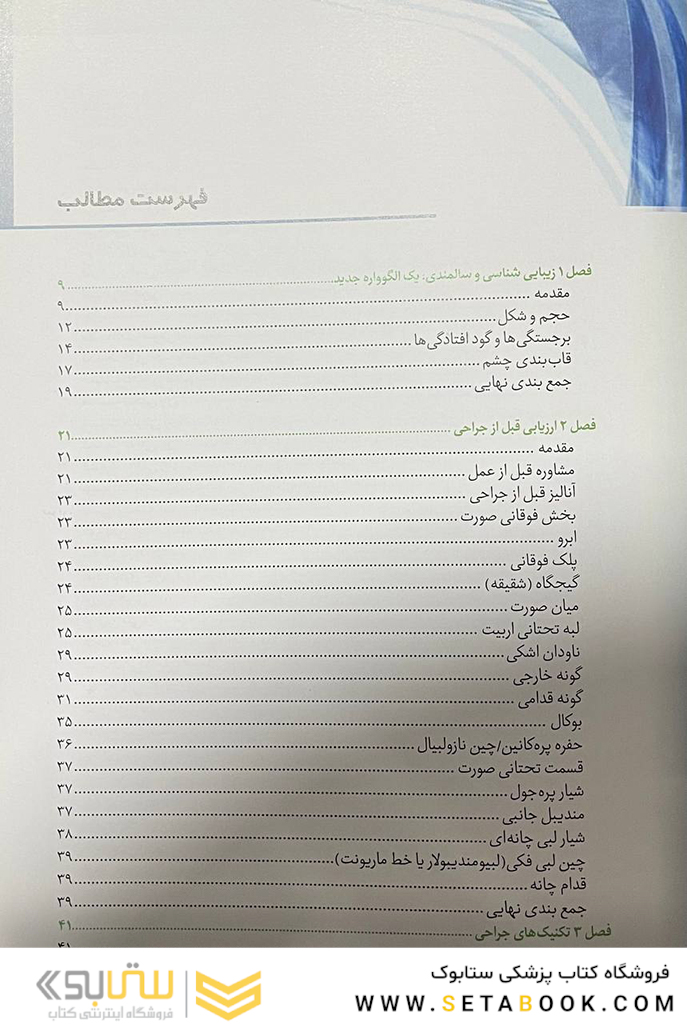 فهرست مطالب
فصل ۱ زیبایی شناسی و سالمندی: یک الگوواره جدید ۹
مقدمه ۹
حجم و شکل ۱۲
برجستگی‌ها و گود افتادگی‌ها ۱۴
قاب‌بندی چشم ۱۷
جمع بندی نهایی ۱۹
فصل ۲ ارزیابی قبل از جراحی ۲۱
مقدمه ۲۱
مشاوره قبل از عمل ۲۱
آنالیز قبل از جراحی ۲۳
بخش فوقانی صورت ۲۳
ابرو ۲۳
پلک فوقانی ۲۴
گیجگاه (شقیقه) ۲۴
میان صورت ۲۵
لبه تحتانی اربیت ۲۵
ناودان اشکی ۲۹
گونه خارجی ۲۹
گونه قدامی ۳۱
بوکال ۳۵
حفره پره‌کانین/چین نازولبیال ۳۶
قسمت تحتانی صورت ۳۷
شیار پره‌جول ۳۷
مندیبل جانبی ۳۷
شیار لبی چانه‌ای ۳۸
چین لبی فکی(لبیومندیبولار یا خط ماریونت) ۳۹
قدام چانه ۳۹
جمع بندی نهایی ۳۹
فصل ۳ تکنیک‌های جراحی ۴۱
۴۱
فروشگاه کتاب پزشکی ستابوک
WWW.SETABOOK.COM
ستابوک
فروشگاه اینترنتی کتاب